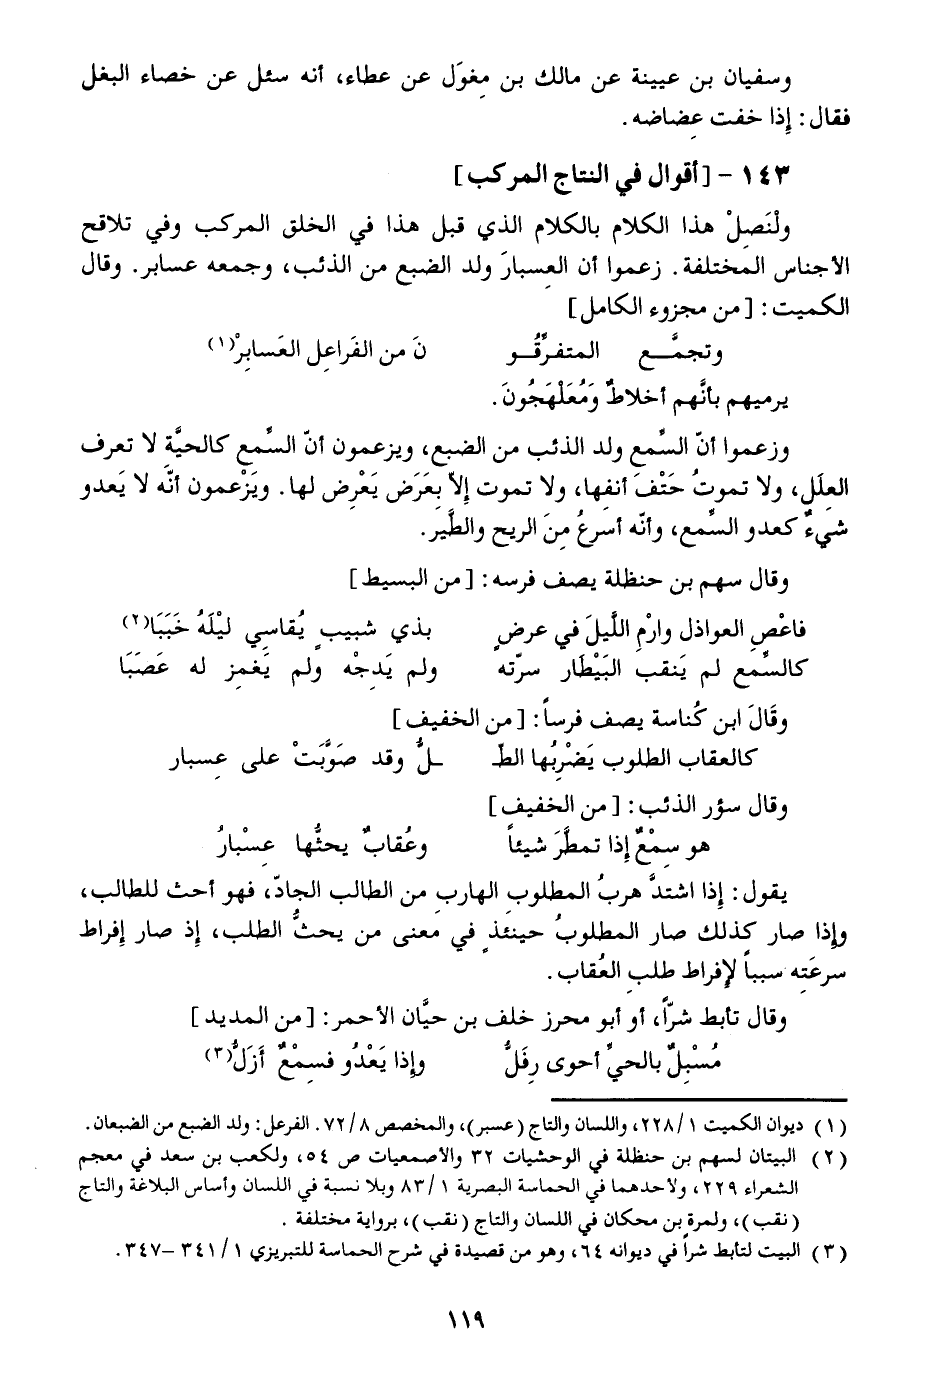 وسفيان بن عيينة عن مالك بن مِغوَل عن عطاء، أنه سئل عن خصاء البغل
فقال: إذا خفت عِضاضه.
١٤٣ - [أقوال في النتاج المركب]
ولْنَصِلْ هذا الكلام بالكلام الذي قبل هذا في الخلق المركب وفي تلاقح
الأجناس المختلفة. زعموا أن العِسبارَ ولد الضبع من الذئب، وجمعه عسابر. وقال
الكميت: [من مجزوء الكامل]
وتجمَّـــع المتفرِّقُــو نَ من الفَراعِل العَسابِرْ(١)
يرميهم بأنَّهم أخلاطٌ وَمُعَلْهَجُونَ.
وزعموا أنّ السِّمع ولد الذئب من الضبع، ويزعمون أنّ السِّمع كالحيَّة لا تعرف
العِلَل، ولا تموتُ حَتْفَ أنفها، ولا تموت إلاّ بِعَرَض يَعْرِض لها. ويَزْعمون أنَّه لا يَعدو
شيءٌ كعدو السِّمع، وأنّه أسرعُ مِنَ الريح والطَّير.
وقال سهم بن حنظلة يصف فرسه: [من البسيط]
فاعْصِ العواذل وارْمِ اللَّيلَ في عرضٍ بذي شبيبٍ يُقاسي ليْلَهُ خَبَبَا(٢)
كالسِّمع لم يَنقب البَيْطار سرّته ولم يَدِجْه ولم يَغمز له عَصَبَا
وقَالَ ابن كُناسة يصف فرساً: [من الخفيف]
كالعقاب الطلوب يَضْرِبُها الطّـ ـلُّ وقد صَوَّبَتْ على عِسبار
وقال سؤر الذئب: [من الخفيف]
هو سِمْعٌ إذا تمطَّرَ شيئاً وعُقابٌ يحثُّها عِسْبارُ
يقول: إذا اشتدَّ هربُ المطلوبِ الهاربِ من الطالب الجادّ، فهو أحث للطالب،
وإذا صار كذلك صار المطلوبُ حينئذٍ في معنى من يحثُّ الطلب، إذ صار إفراط
سرعَتِه سبباً لإفراط طلب العُقاب.
وقال تأبط شرّاً، أو أبو محرز خلف بن حيَّان الأحمر: [من المديد]
مُسْبِلٌ بالحيِّ أحوى رِفَلُّ وإذا يَعْدُو فسِمْعٌ أَزَلُّ(٣)
(١) ديوان الكميت ٢٢٨/١، واللسان والتاج (عسبر)، والمخصص ٧٢/٨. الفرعل: ولد الضبع من الضبعان.
(٢) البيتان لسهم بن حنظلة في الوحشيات ٣٢ والأصمعيات ص ٥٤، ولكعب بن سعد في معجم
الشعراء ٢٢٩، ولأحدهما في الحماسة البصرية ٨٣/١ وبلا نسبة في اللسان وأساس البلاغة والتاج
(نقب)، ولمرة بن محكان في اللسان والتاج (نقب)، برواية مختلفة .
(٣) البيت لتأبط شراً في ديوانه ٦٤، وهو من قصيدة في شرح الحماسة للتبريزي ٣٤١/١ -٣٤٧.
١١٩